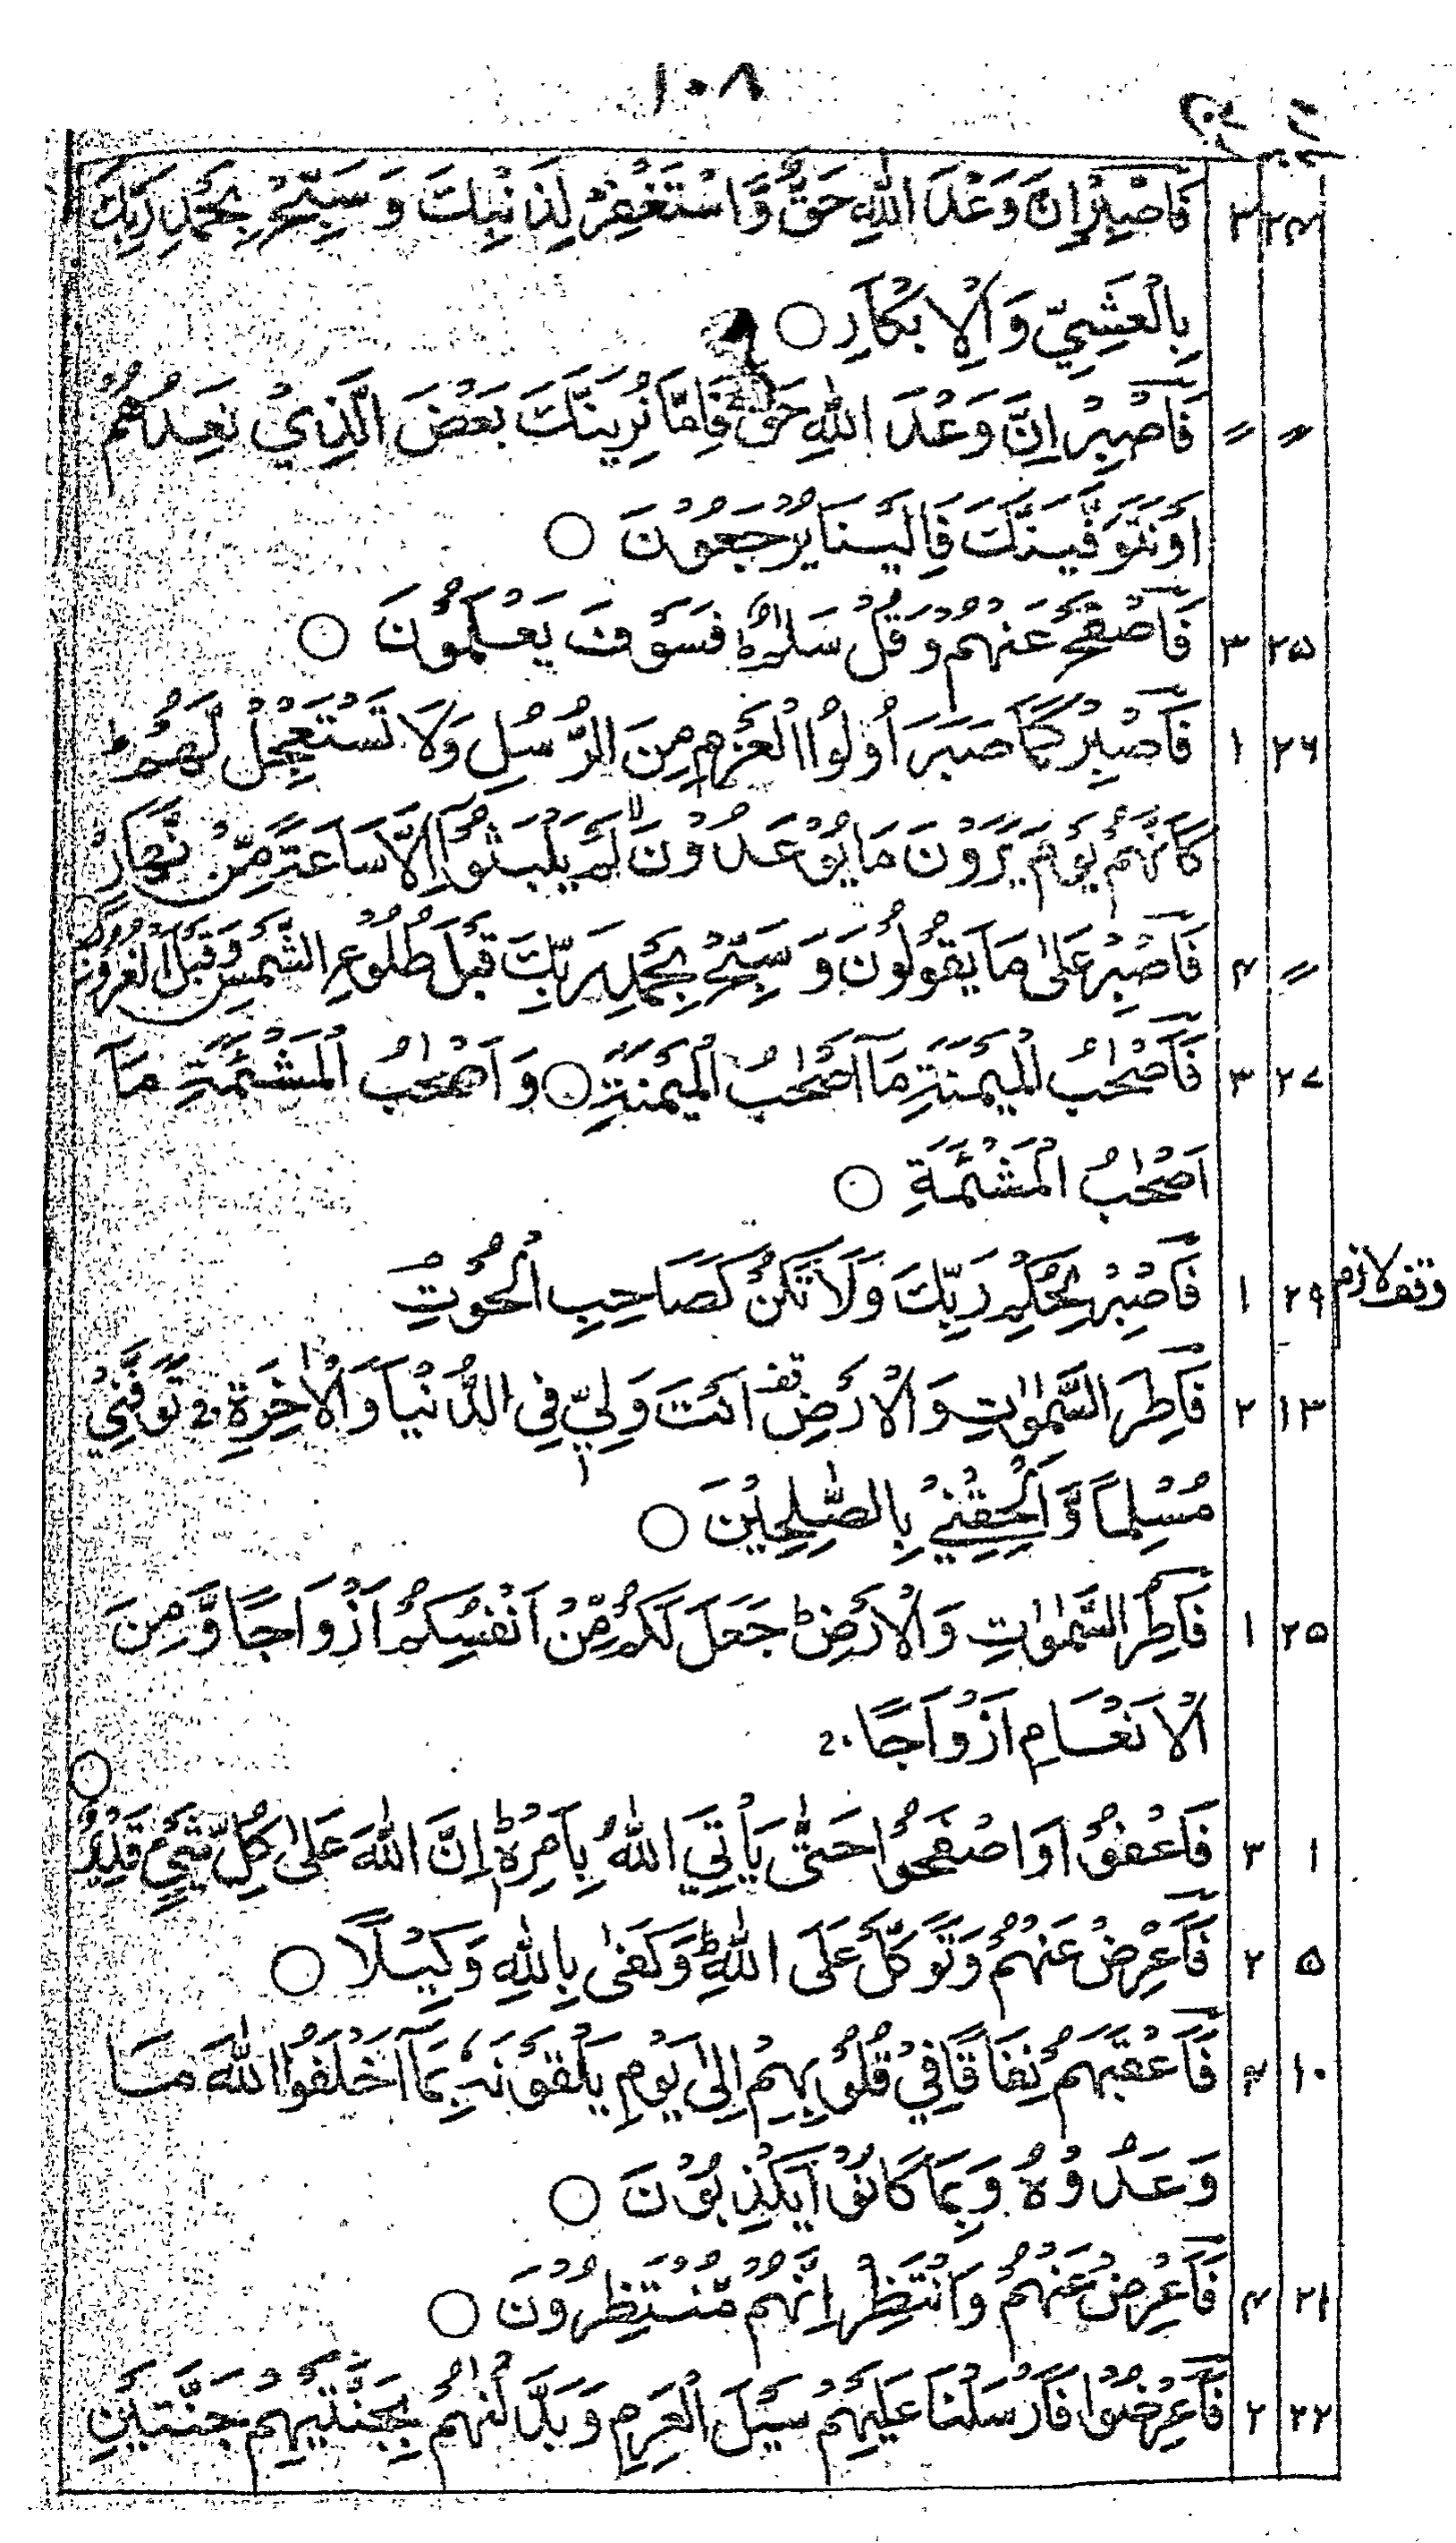 ۱۰۸
۲۴ ۳ فَاصْبِرْ اِنَّ وَعْدَ اللّٰهِ حَقٌّ وَّاسْتَغْفِرْ لِذَنْۢبِكَ وَ سَبِّحْ بِحَمْدِ رَبِّكَ
بِالْعَشِيِّ وَالْاِبْكَارِ ○
〃 〃 فَاصْبِرْ اِنَّ وَعْدَ اللّٰهِ حَقٌّ فَاِمَّا نُرِيَنَّكَ بَعْضَ الَّذِيْ نَعِدُهُمْ
اَوْ نَتَوَفَّيَنَّكَ فَاِلَيْنَا يُرْجَعُوْنَ ○
۲۵ ۳ فَاصْفَحْ عَنْهُمْ وَقُلْ سَلٰمٌ فَسَوْفَ يَعْلَمُوْنَ ○
۲۶ ۱ فَاصْبِرْ كَمَا صَبَرَ اُولُوا الْعَزْمِ مِنَ الرُّسُلِ وَلَا تَسْتَعْجِلْ لَّهُمْ ط
كَاَنَّهُمْ يَوْمَ يَرَوْنَ مَا يُوْعَدُوْنَ لا لَمْ يَلْبَثُوْٓا اِلَّا سَاعَةً مِّنْ نَّهَارٍ
〃 ۲ فَاصْبِرْ عَلٰى مَا يَقُوْلُوْنَ وَ سَبِّحْ بِحَمْدِ رَبِّكَ قَبْلَ طُلُوْعِ الشَّمْسِ وَقَبْلَ الْغُرُوْبِ ○
۲۷ ۳ فَاَصْحٰبُ الْمَيْمَنَةِ مَآ اَصْحٰبُ الْمَيْمَنَةِ ○ وَ اَصْحٰبُ الْمَشْئَمَةِ مَآ
اَصْحٰبُ الْمَشْئَمَةِ ○
وقف لازم ۲۹ ۱ فَاصْبِرْ لِحُكْمِ رَبِّكَ وَلَا تَكُنْ كَصَاحِبِ الْحُوْتِ م
۱۳ ۲ فَاطِرَ السَّمٰوٰتِ وَالْاَرْضِ قف اَنْتَ وَلِيّٖ فِى الدُّنْيَا وَالْاٰخِرَةِ ج تَوَفَّنِيْ
مُسْلِمًا وَّاَلْحِقْنِيْ بِالصّٰلِحِيْنَ ○
۲۵ ۱ فَاطِرُ السَّمٰوٰتِ وَالْاَرْضِ ط جَعَلَ لَكُمْ مِّنْ اَنْفُسِكُمْ اَزْوَاجًا وَّمِنَ
الْاَنْعَامِ اَزْوَاجًا ج
۱ ۳ فَاعْفُوْا وَاصْفَحُوْا حَتّٰى يَاْتِيَ اللّٰهُ بِاَمْرِهٖ ط اِنَّ اللّٰهَ عَلٰى كُلِّ شَيْءٍ قَدِيْرٌ ○
۵ ۲ فَاَعْرِضْ عَنْهُمْ وَتَوَكَّلْ عَلَى اللّٰهِ ط وَكَفٰى بِاللّٰهِ وَكِيْلًا ○
۱۰ ۴ فَاَعْقَبَهُمْ نِفَاقًا فِيْ قُلُوْبِهِمْ اِلٰى يَوْمِ يَلْقَوْنَهٗ بِمَآ اَخْلَفُوا اللّٰهَ مَا
وَعَدُوْهُ وَبِمَا كَانُوْا يَكْذِبُوْنَ ○
۲۱ ۲ فَاَعْرِضْ عَنْهُمْ وَانْتَظِرْ اِنَّهُمْ مُّنْتَظِرُوْنَ ○
۲۲ ۲ فَاَعْرَضُوْا فَاَرْسَلْنَا عَلَيْهِمْ سَيْلَ الْعَرِمِ وَبَدَّلْنٰهُمْ بِجَنَّتَيْهِمْ جَنَّتَيْنِ